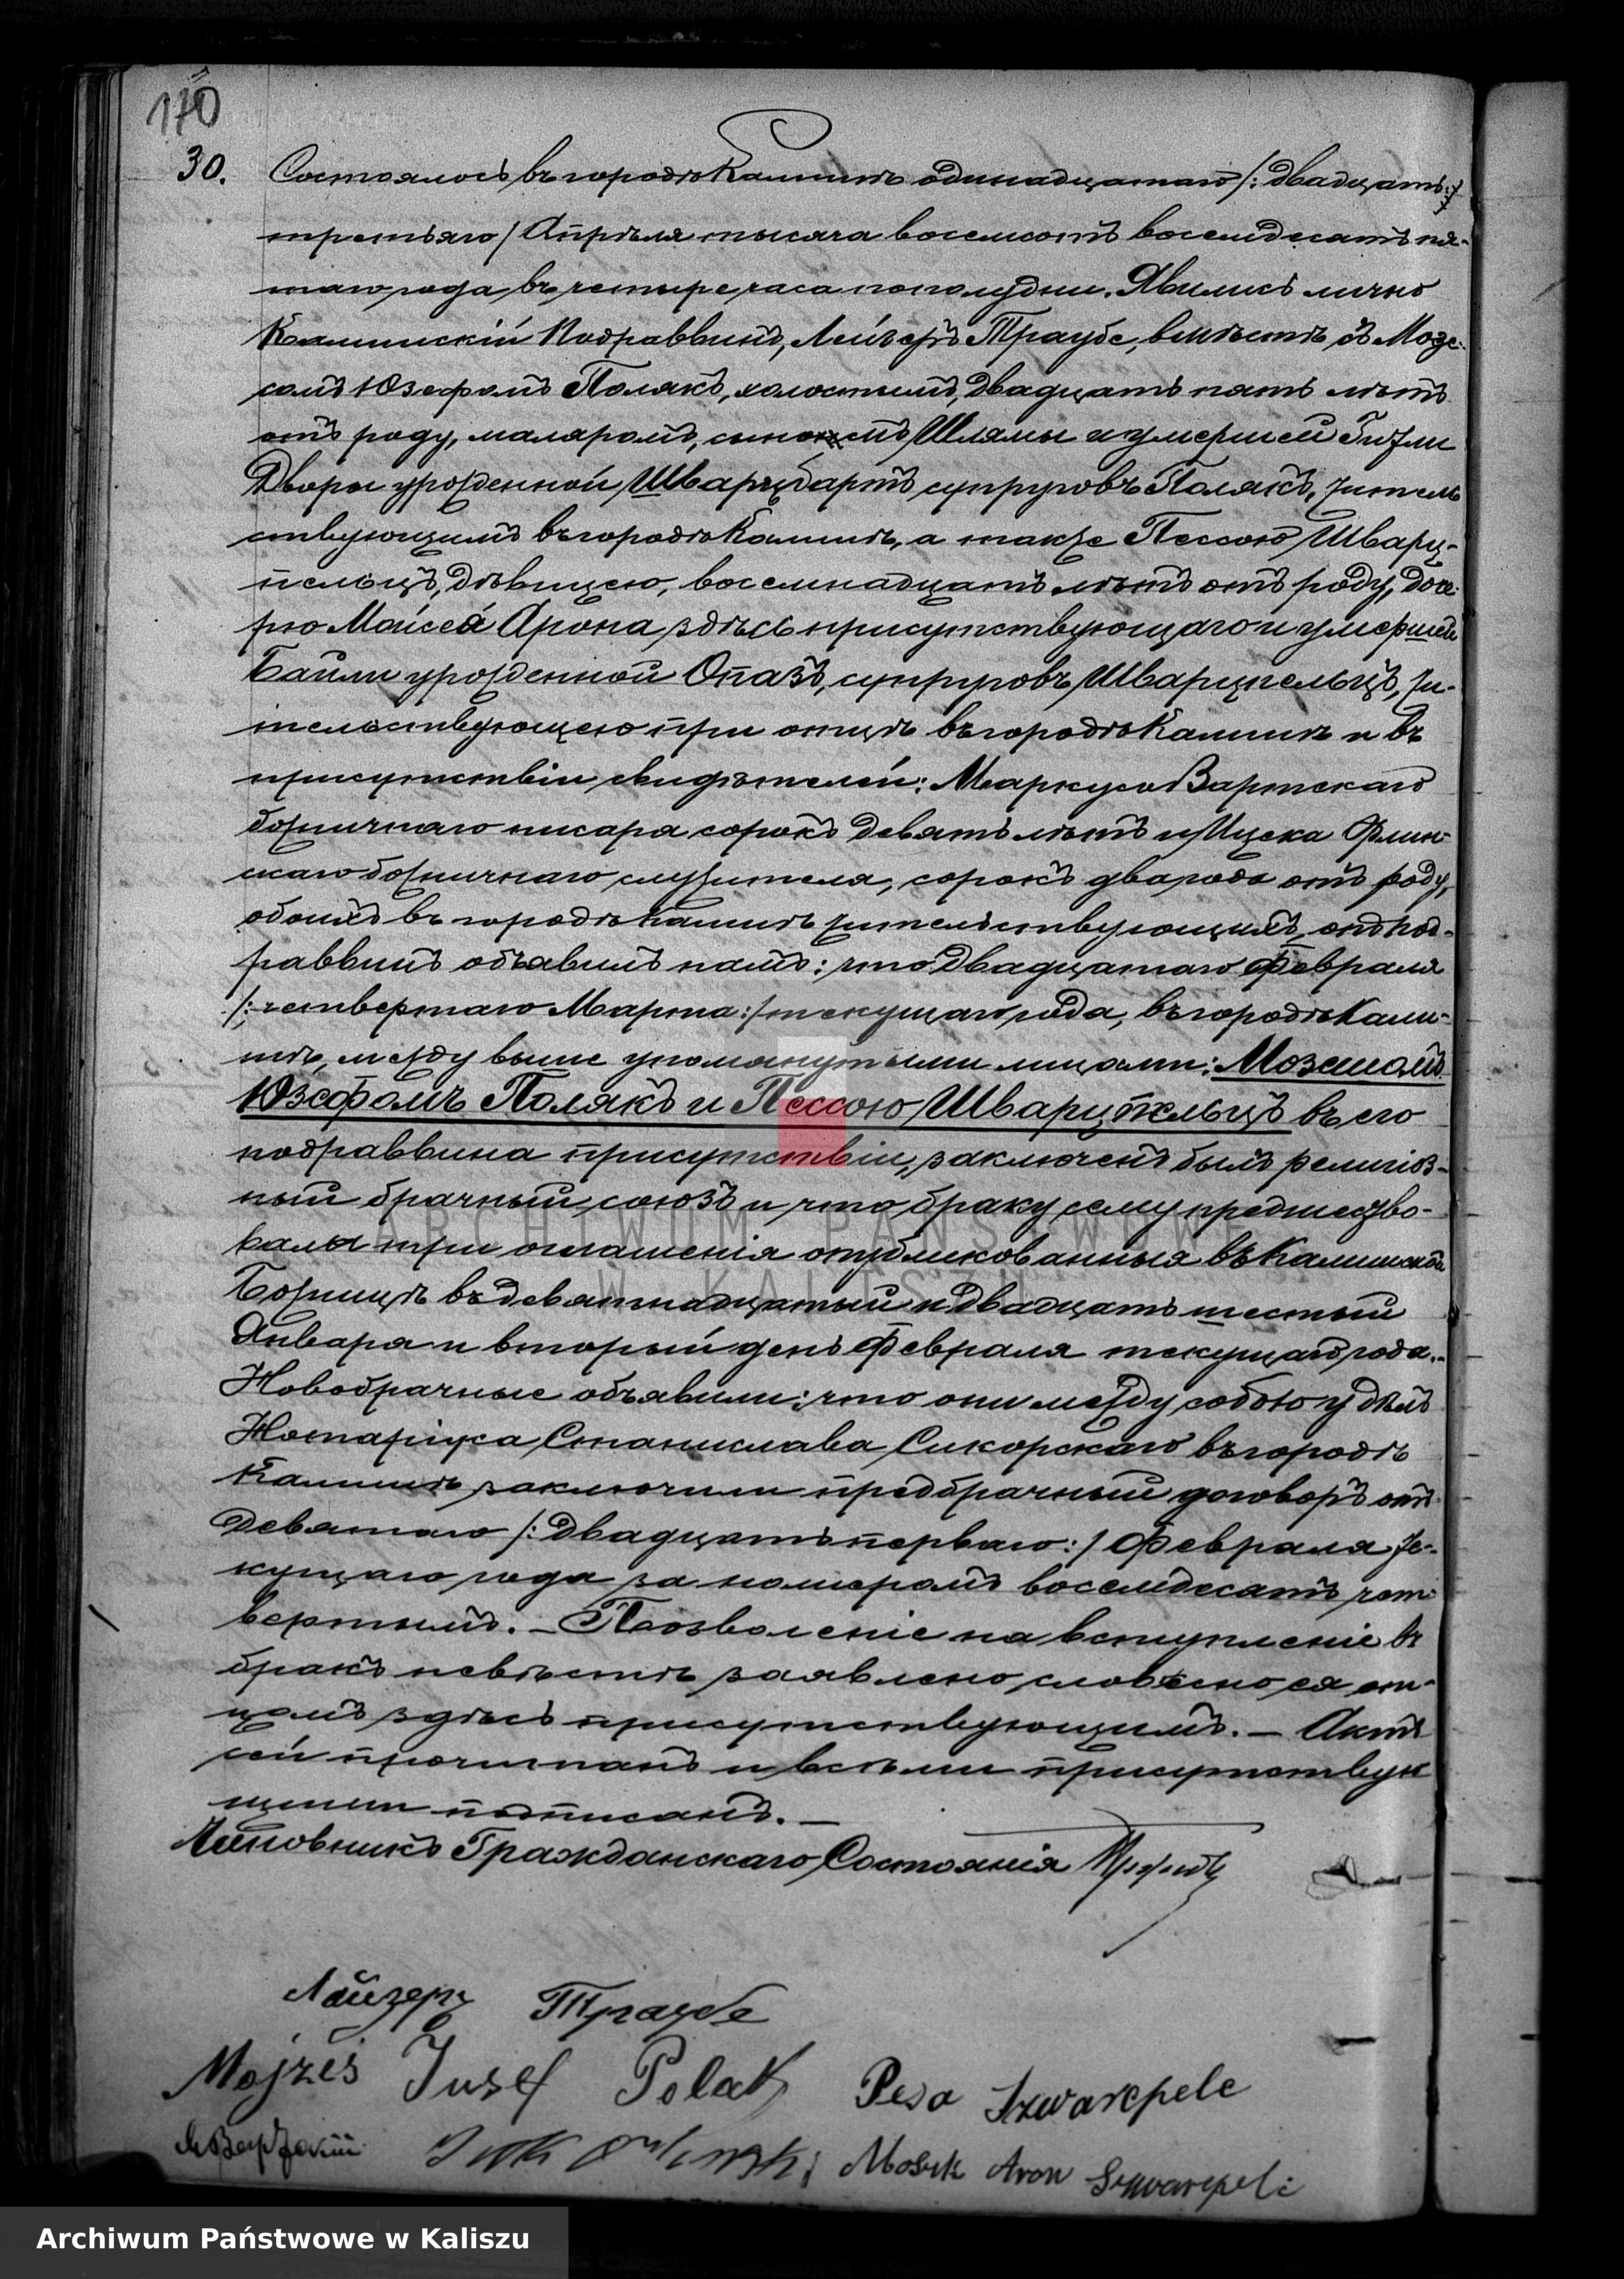 170
30. Состоялось въ городѣ Калишѣ одинадцатаго /: двадцать
третьяго / Апрѣля тысяча восемсотъ восемдесятъ пя-
таго года, въ четыре часа пополудни. Явились лично
Калишскій Подраввинъ, Лейзеръ Траубе, вмѣстѣ съ Мозе-
сомъ Юзефомъ Полякъ, холостымъ, двадцать пять лѣтъ
отъ роду, маляромъ, сыномъ Шлямы и умершей
Дворы урожденной Шварцбартъ супруговъ Полякъ, житель
ствующимъ въ городѣ Калишѣ, а также Пессою Шварц-
пельцъ, дѣвицею, восемнадцать лѣтъ отъ роду, доче-
рю Мойсея Арона, здѣсь присутствующаго и умершей
Байли урожденной Опазъ, супруговъ Шварцпельцъ, жи-
тельствующею при отцѣ въ городѣ Калишѣ и въ
присутствіи свидѣтелей: Маркуса Вартскаго
божничнаго писаря сорокъ девять лѣтъ и Ицека Флин-
скаго божничнаго служителя, сорокъ два года отъ роду,
обоихъ въ городѣ Калишѣ жительствующихъ, онъ под-
раввинъ объявилъ намъ: что двадцатаго Февраля
/: четвертаго Марта :/ текущаго года, въ городѣ Кали-
шѣ, между выше упомянутыми лицами: Мозешомъ
Юзефомъ Полякъ и Пессою Шварцпельцъ въ его
подраввина присутствіи, заключенъ былъ религіоз-
ный брачный союзъ и что браку сему предшество-
вали три оглашенія опубликованныя въ Калишской
Божницѣ въ девятнадцатый и двадцать шестый
Января и вторый день Февраля текущаго года.-
Новобрачные объявили: что они между собою у дѣлъ
Нотаріуса Станислава Сикорскаго въ городѣ
Калишѣ заключили предбрачный договоръ отъ
девятаго /: двадцать перваго :/ Февраля те-
кущаго года за номеромъ восемдесятъ чет-
вертымъ. - Позволеніе на вступленіе въ
бракъ невѣстѣ заявлено словесно ея от-
цомъ здѣсь присутствующимъ. - Актъ
сей прочитанъ и всѣми присутствую
щими подписанъ. -
Чиновникъ Гражданскаго Состоянія
Лайзеръ Траубе
Mojżeś Jusef Polak Pesa Szwarcpelc
М Вартскій Mosiek Aron Szwarcpelc
ARCHIWUM PAŃSTWOWE
W KALISZU
Archiwum Państwowe w Kaliszu